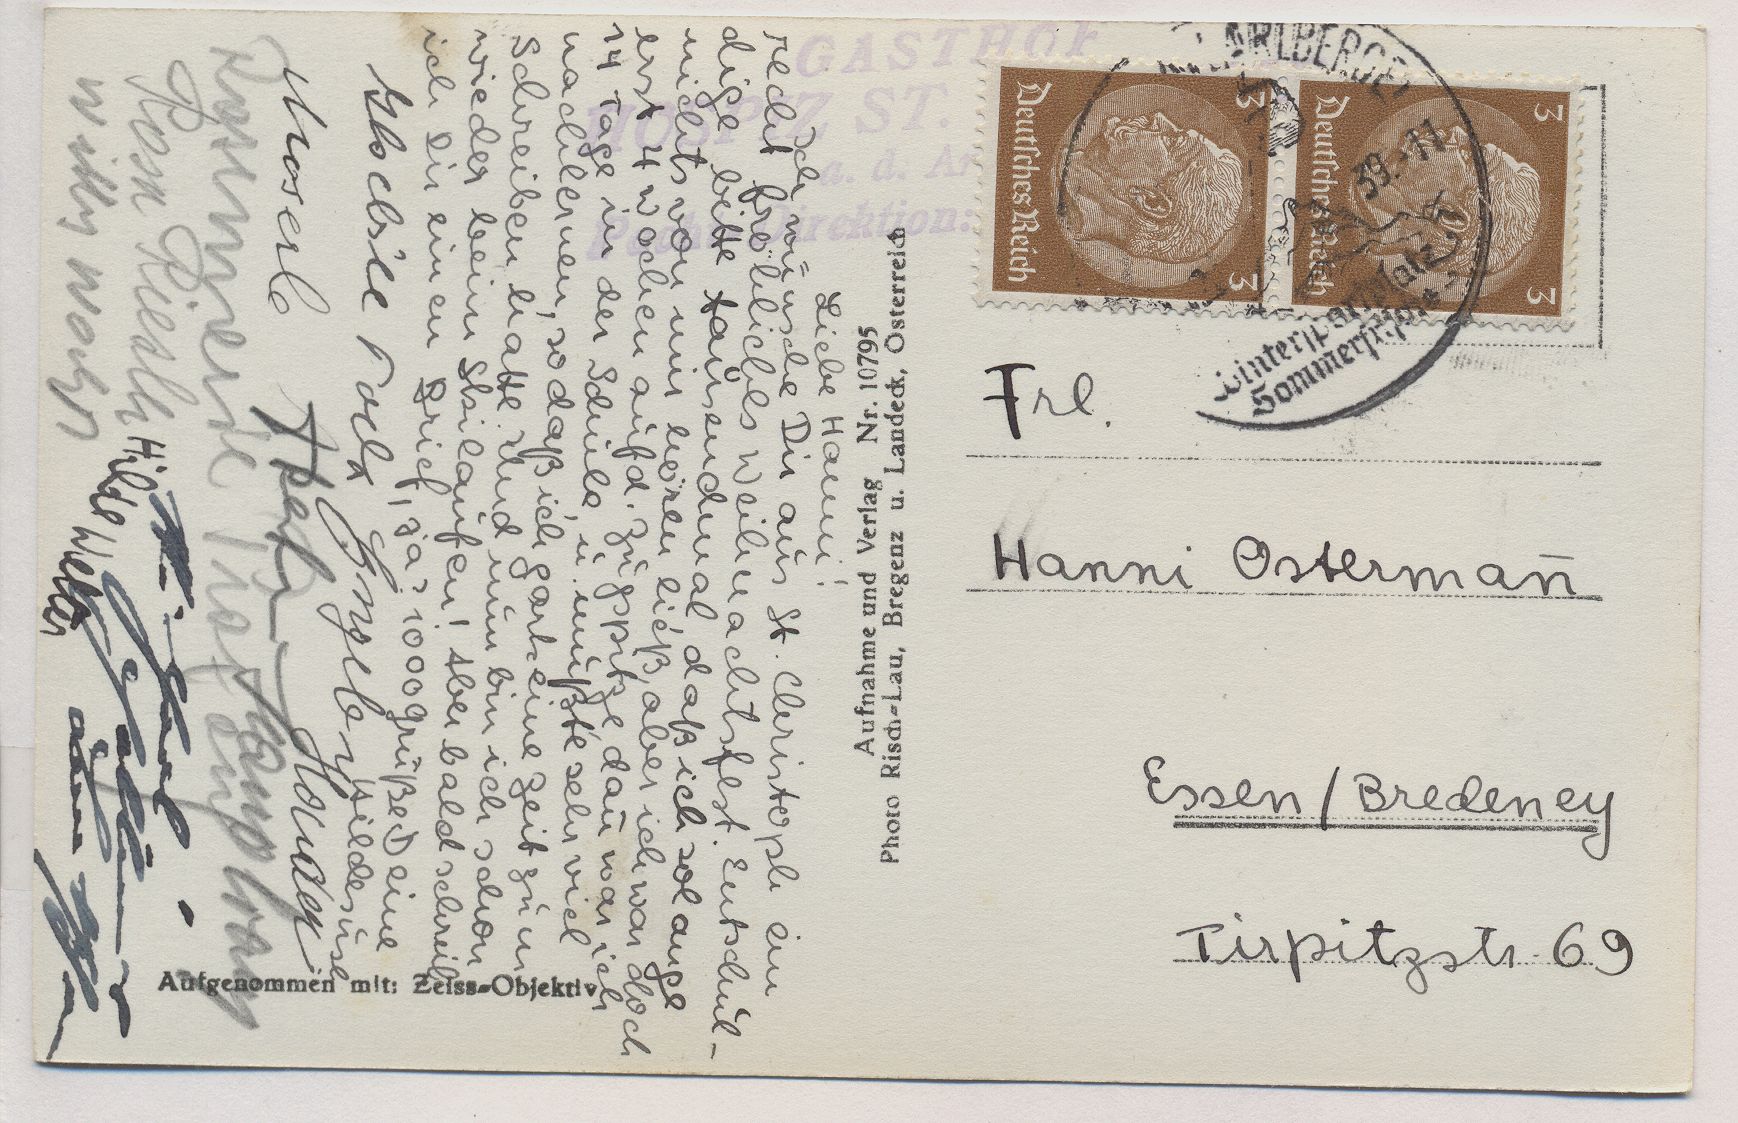 Liebe Hanni!
Ich wünsche Dir aus St. Christoph ein
recht fröhliches Weihnachtsfest. Entschul-
dige bitte tausendmal daß ich so lange
nichts von mir hören ließ, aber ich war doch
erst 4 Wochen auf d. Zugspitze dan̄ war ich
14 Tage in der Schule, u. mußte sehr viel
nachlernen, sodaß ich gar keine Zeit zum
Schreiben hatte. Und nun bin ich schon
wieder beim Skilaufen! Aber bald schreib
ich Dir einen Brief, ja? 1000 Grüße Deine
Hildesuse
Rosa Riedl
Willy Wolf
Hilde Weber
Aufgenommen mit: Zeiss-Objektiv
Aufnahme und Verlag Nr. 10795
Photo Risch-Lau, Bregenz u. Landeck, Österreich
GASTHOF
HOSPIZ ST.
a. d. Ar
Direktion:
Deutsches Reich
3
3
Deutsches Reich
3
3
ARLBERG
39.-11
Wintersportplatz
Sommerfrische
Frl.
Hanni Osterman̄
Essen/Bredeney
Tirpitzstr. 69